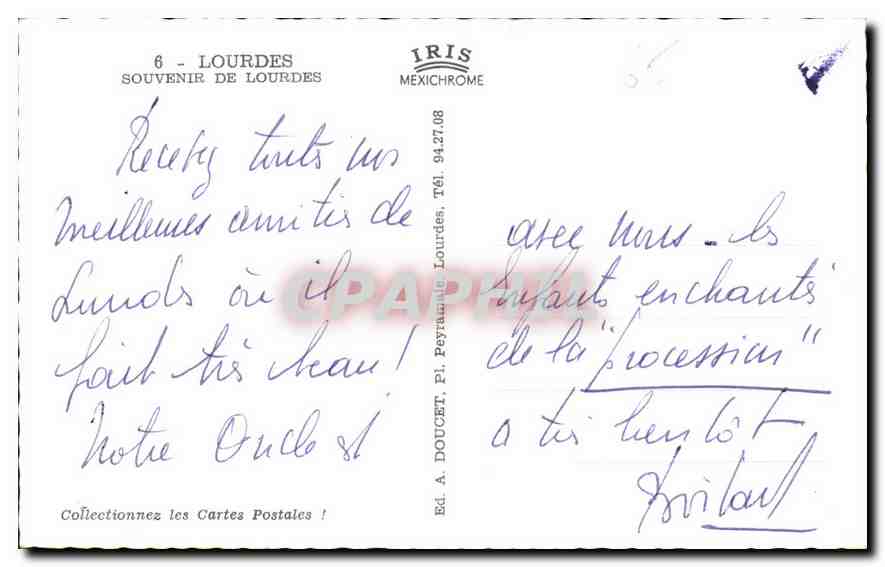 6 - LOURDES
SOUVENIR DE LOURDES
IRIS
MEXICHROME
Recevez toutes nos
meilleures amitiés de
Lourdes où il
fait très beau !
Notre Oncle est
Collectionnez les Cartes Postales !
Ed. A. DOUCET, Pl. Peyramale, Lourdes, Tél. 94.27.08
avec nous - les
enfants enchantés
de la "procession"
a très bientôt
CPAPHIL